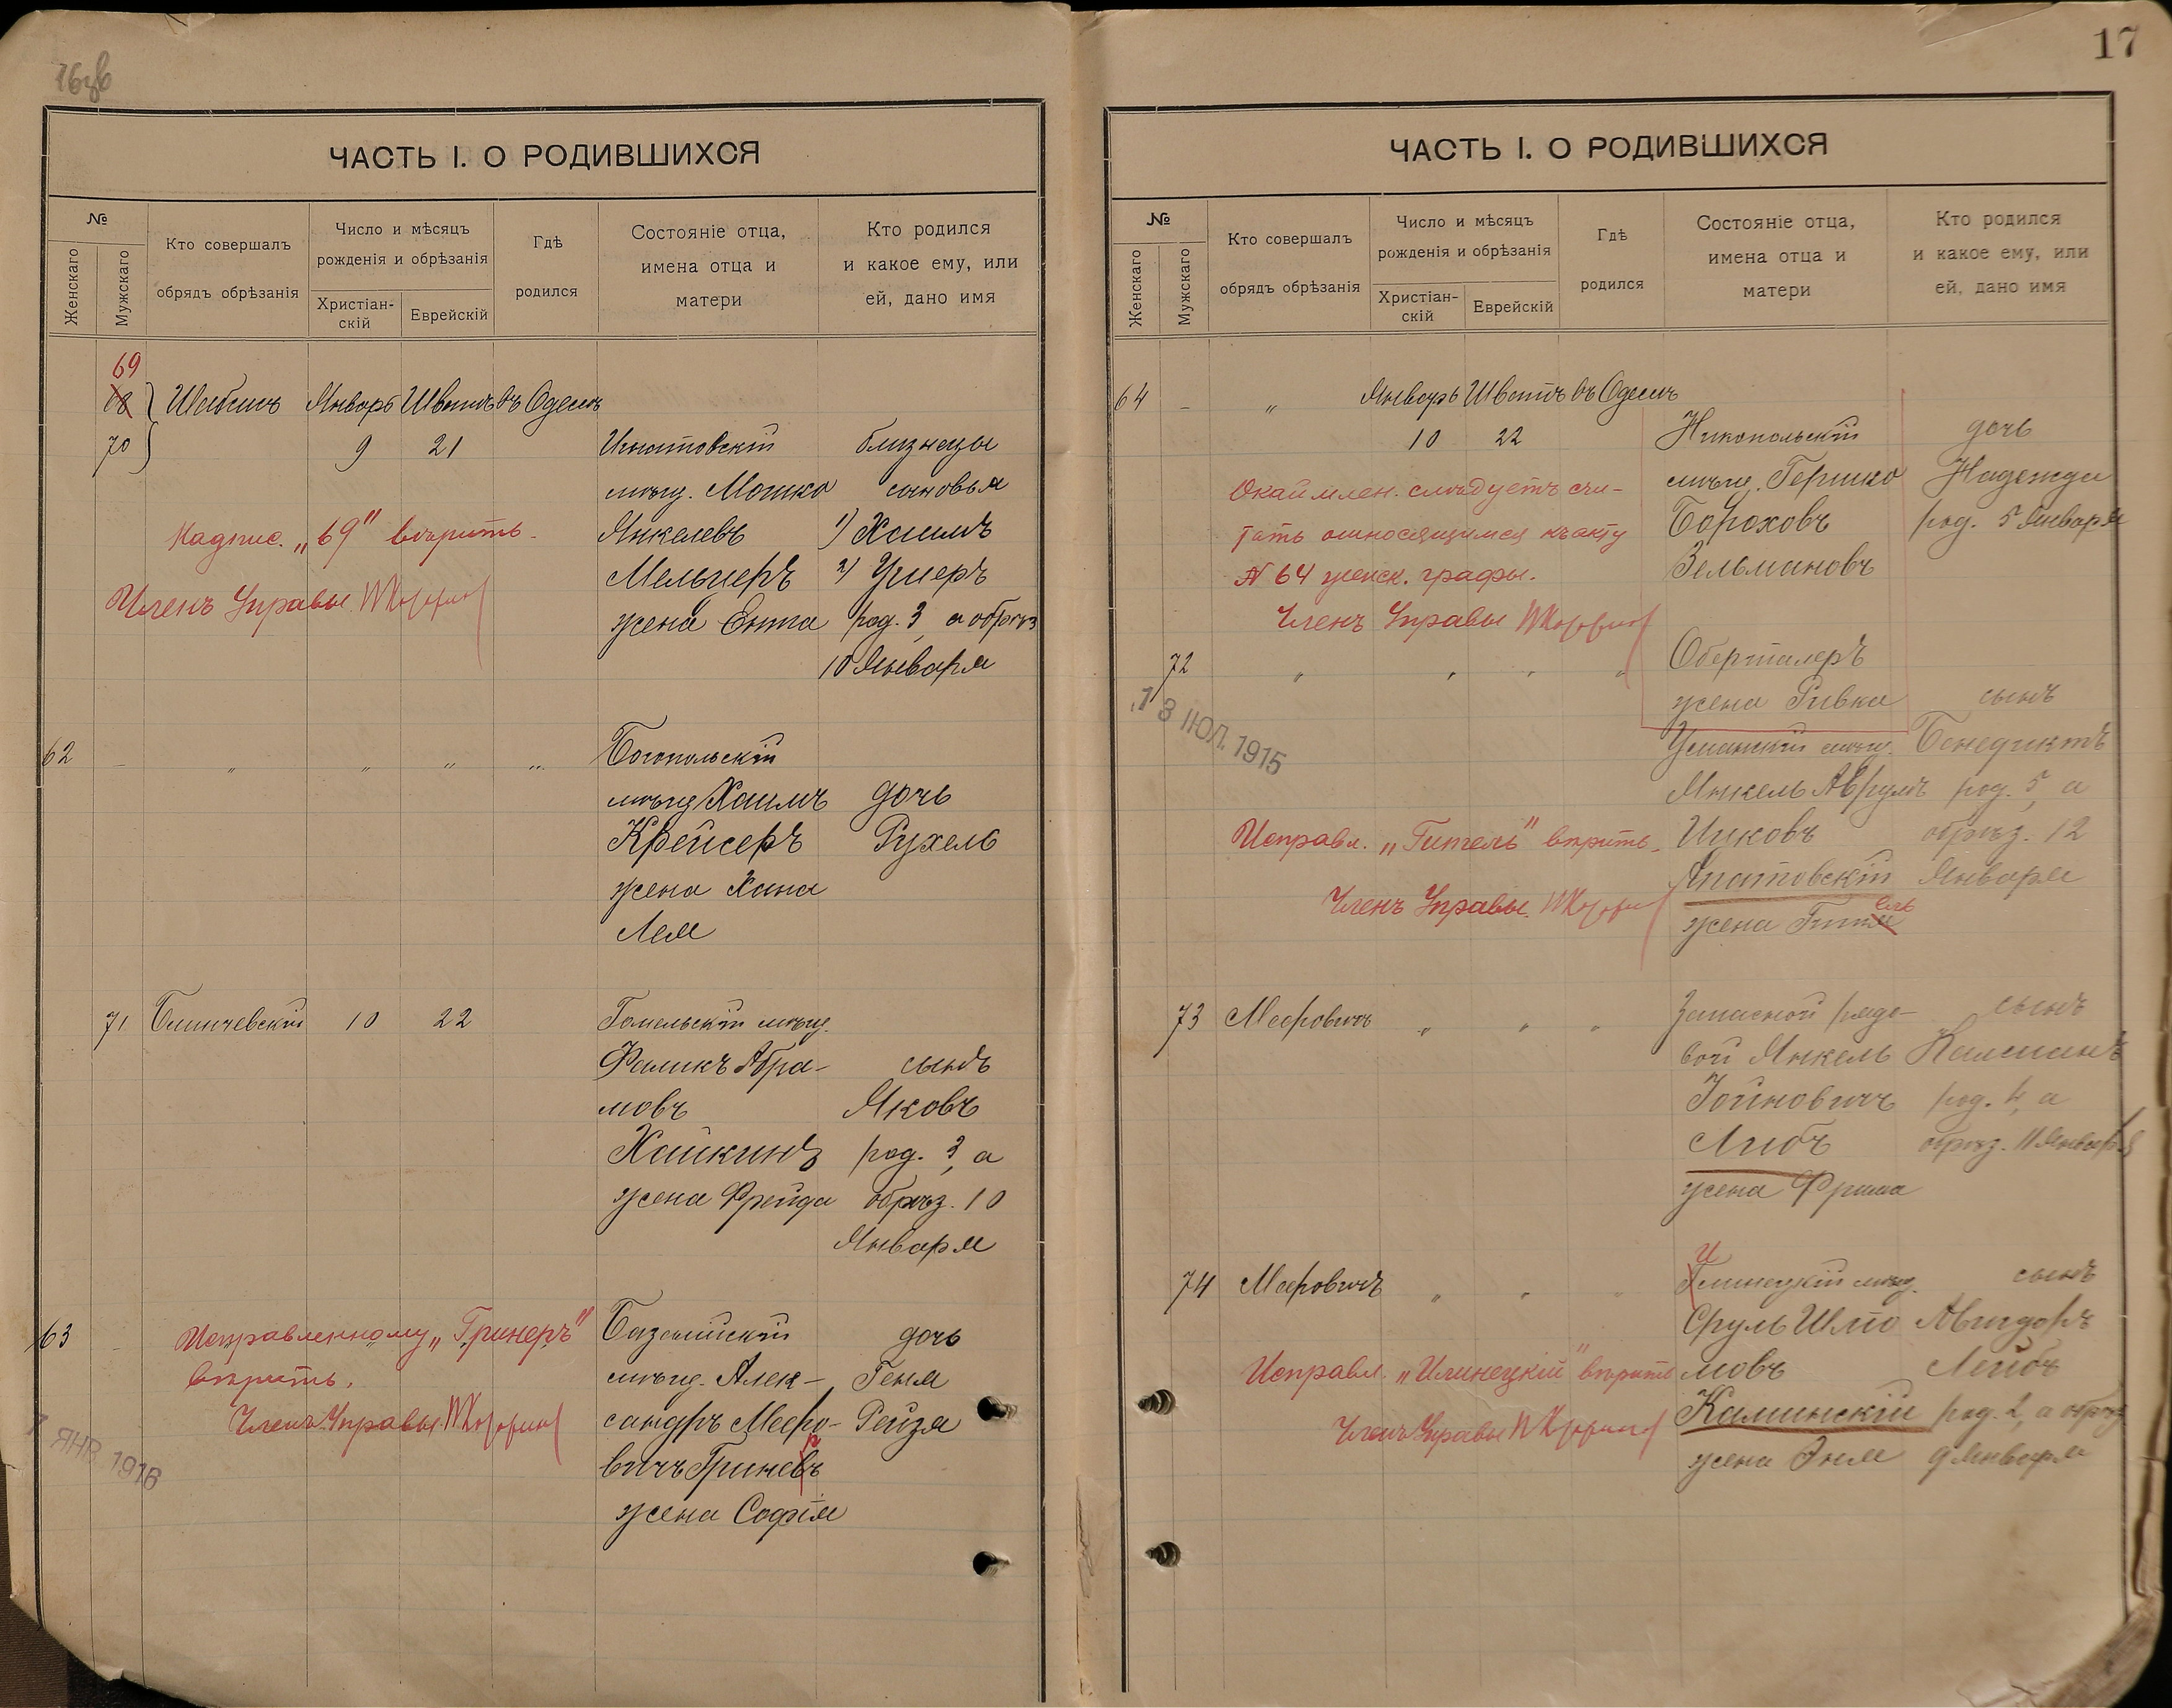 16 об
ЧАСТЬ I. О РОДИВШИХСЯ
№
Женскаго
Мужскаго
Кто совершалъ
обрядъ обрѣзанія
Число и мѣсяцъ
рожденія и обрѣзанія
Христіан-
скій
Еврейскій
Гдѣ
родился
Состояніе отца,
имена отца и
матери
Кто родился
и какое ему, или
ей, дано имя
69
68 Январь Шватъ въ Одессѣ
70 9 21 близнецы
мѣщ. Мошко сыновья
Надпис. „69" вѣрить. Янкелевъ 1) Хаимъ
Мельперъ 2) Ушеръ
Членъ Управы
жена Ента род. 3, а обрѣз
10 Января
62 — „ „ „ „ Богопольскій
мѣщ Хаимъ дочь
Крейсеръ Рухель
жена Хана
Лея
71 10 22 Гомельскій мѣщ.
Фаликъ Абра- сынъ
мовъ Яковъ
Хайкинъ род. 3, а
жена Фрейда обрѣз. 10
Января
63 — Исправленному „Гринеръ" дочь
вѣрить. мѣщ. Алек- Геня
Членъ Управы сандръ Мееро- Рейзя
р
вичъ Гриневъ
жена Софія
7 ЯНВ. 1916
17
ЧАСТЬ I. О РОДИВШИХСЯ
№
Женскаго
Мужскаго
Кто совершалъ
обрядъ обрѣзанія
Число и мѣсяцъ
рожденія и обрѣзанія
Христіан-
скій
Еврейскій
Гдѣ
родился
Состояніе отца,
имена отца и
матери
Кто родился
и какое ему, или
ей, дано имя
64 — „ Январь Шватъ въ Одессѣ
10 22 Никопольскій дочь
Окаймлен. слѣдуетъ счи- мѣщ. Гершко Надежда
тать относящимся къ акту Бороховъ род. 5 Января
№ 64 женск. графы. Зельмановъ
Членъ Управы
72 „ „ „ „ Оберталеръ
жена Ривка сынъ
13 ІЮЛ. 1915
Уманскій мѣщ. Бенедиктъ
Янкель Аврумъ род. 5, а
Исправл. „Гитель" вѣрить. Ицковъ обрѣз. 12
Апатовскій Января
Членъ Управы
ель
жена Гитя
73 Мееровичъ „ „ „ Запасной рядо- сынъ
вой Янкель Калманъ
Іойновичъ род. 4, а
Либъ обрѣз. 11 Января
жена Фрима
И
74 Мееровичъ „ „ „ Глинецкій мѣщ. сынъ
Сруль Шлё Авигдоръ
Исправл. „Илинецкій" вѣрить мовъ Лейбъ
Каминскій род. 2, а обрѣз
Членъ Управы
жена Эня 9 Января